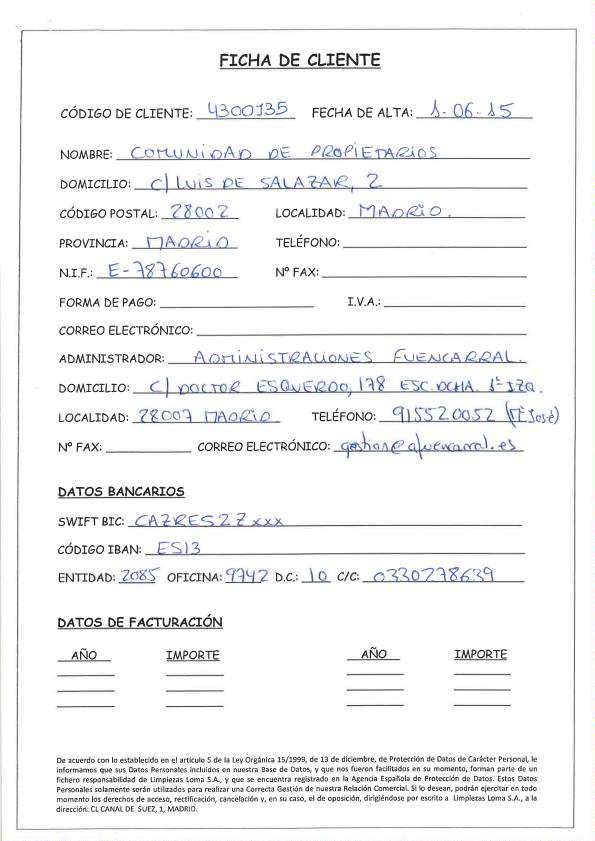 FICHA DE CLIENTE
CÓDIGO DE CLIENTE: 4300135 FECHA DE ALTA: 1-06-15
NOMBRE: COMUNIDAD DE PROPIETARIOS
DOMICILIO: C/ LUIS DE SALAZAR, 2
CÓDIGO POSTAL: 28002 LOCALIDAD: MADRID.
PROVINCIA: MADRID TELÉFONO:
N.I.F.: E-78760600 Nº FAX:
FORMA DE PAGO: I.V.A.:
CORREO ELECTRÓNICO:
ADMINISTRADOR: ADMINISTRACIONES FUENCARRAL.
DOMICILIO: C/ DOCTOR ESQUERDO, 178 ESC. DCHA. 1º IZQ.
LOCALIDAD: 28007 MADRID TELÉFONO: 915520052 (Mª José)
Nº FAX: CORREO ELECTRÓNICO: gestion@afuencarral.es
DATOS BANCARIOS
SWIFT BIC: CAZRES2Zxxx
CÓDIGO IBAN: ES13
ENTIDAD: 2085 OFICINA: 9742 D.C.: 10 C/C: 0330278639
DATOS DE FACTURACIÓN
AÑO IMPORTE AÑO IMPORTE
De acuerdo con lo establecido en el artículo 5 de la Ley Orgánica 15/1999, de 13 de diciembre, de Protección de Datos de Carácter Personal, le
informamos que sus Datos Personales incluidos en nuestra Base de Datos, y que nos fueron facilitados en su momento, forman parte de un
fichero responsabilidad de Limpiezas Loma S.A., y que se encuentra registrado en la Agencia Española de Protección de Datos. Estos Datos
Personales solamente serán utilizados para realizar una Correcta Gestión de nuestra Relación Comercial. Si lo desean, podrán ejercitar en todo
momento los derechos de acceso, rectificación, cancelación y, en su caso, el de oposición, dirigiéndose por escrito a Limpiezas Loma S.A., a la
dirección: CL CANAL DE SUEZ, 1, MADRID.